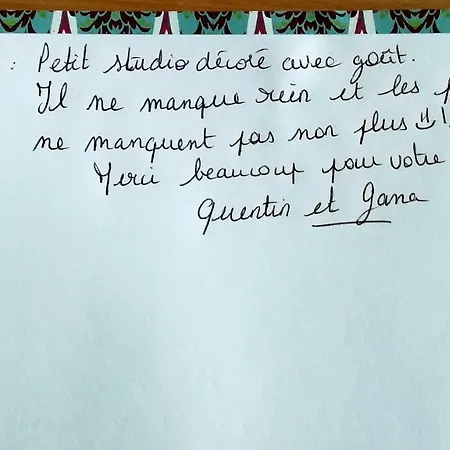 : Petit studio décoré avec goût.
Il ne manque rien et les
ne manquent pas non plus
Merci beaucoup pour votre
Quentin et Jana